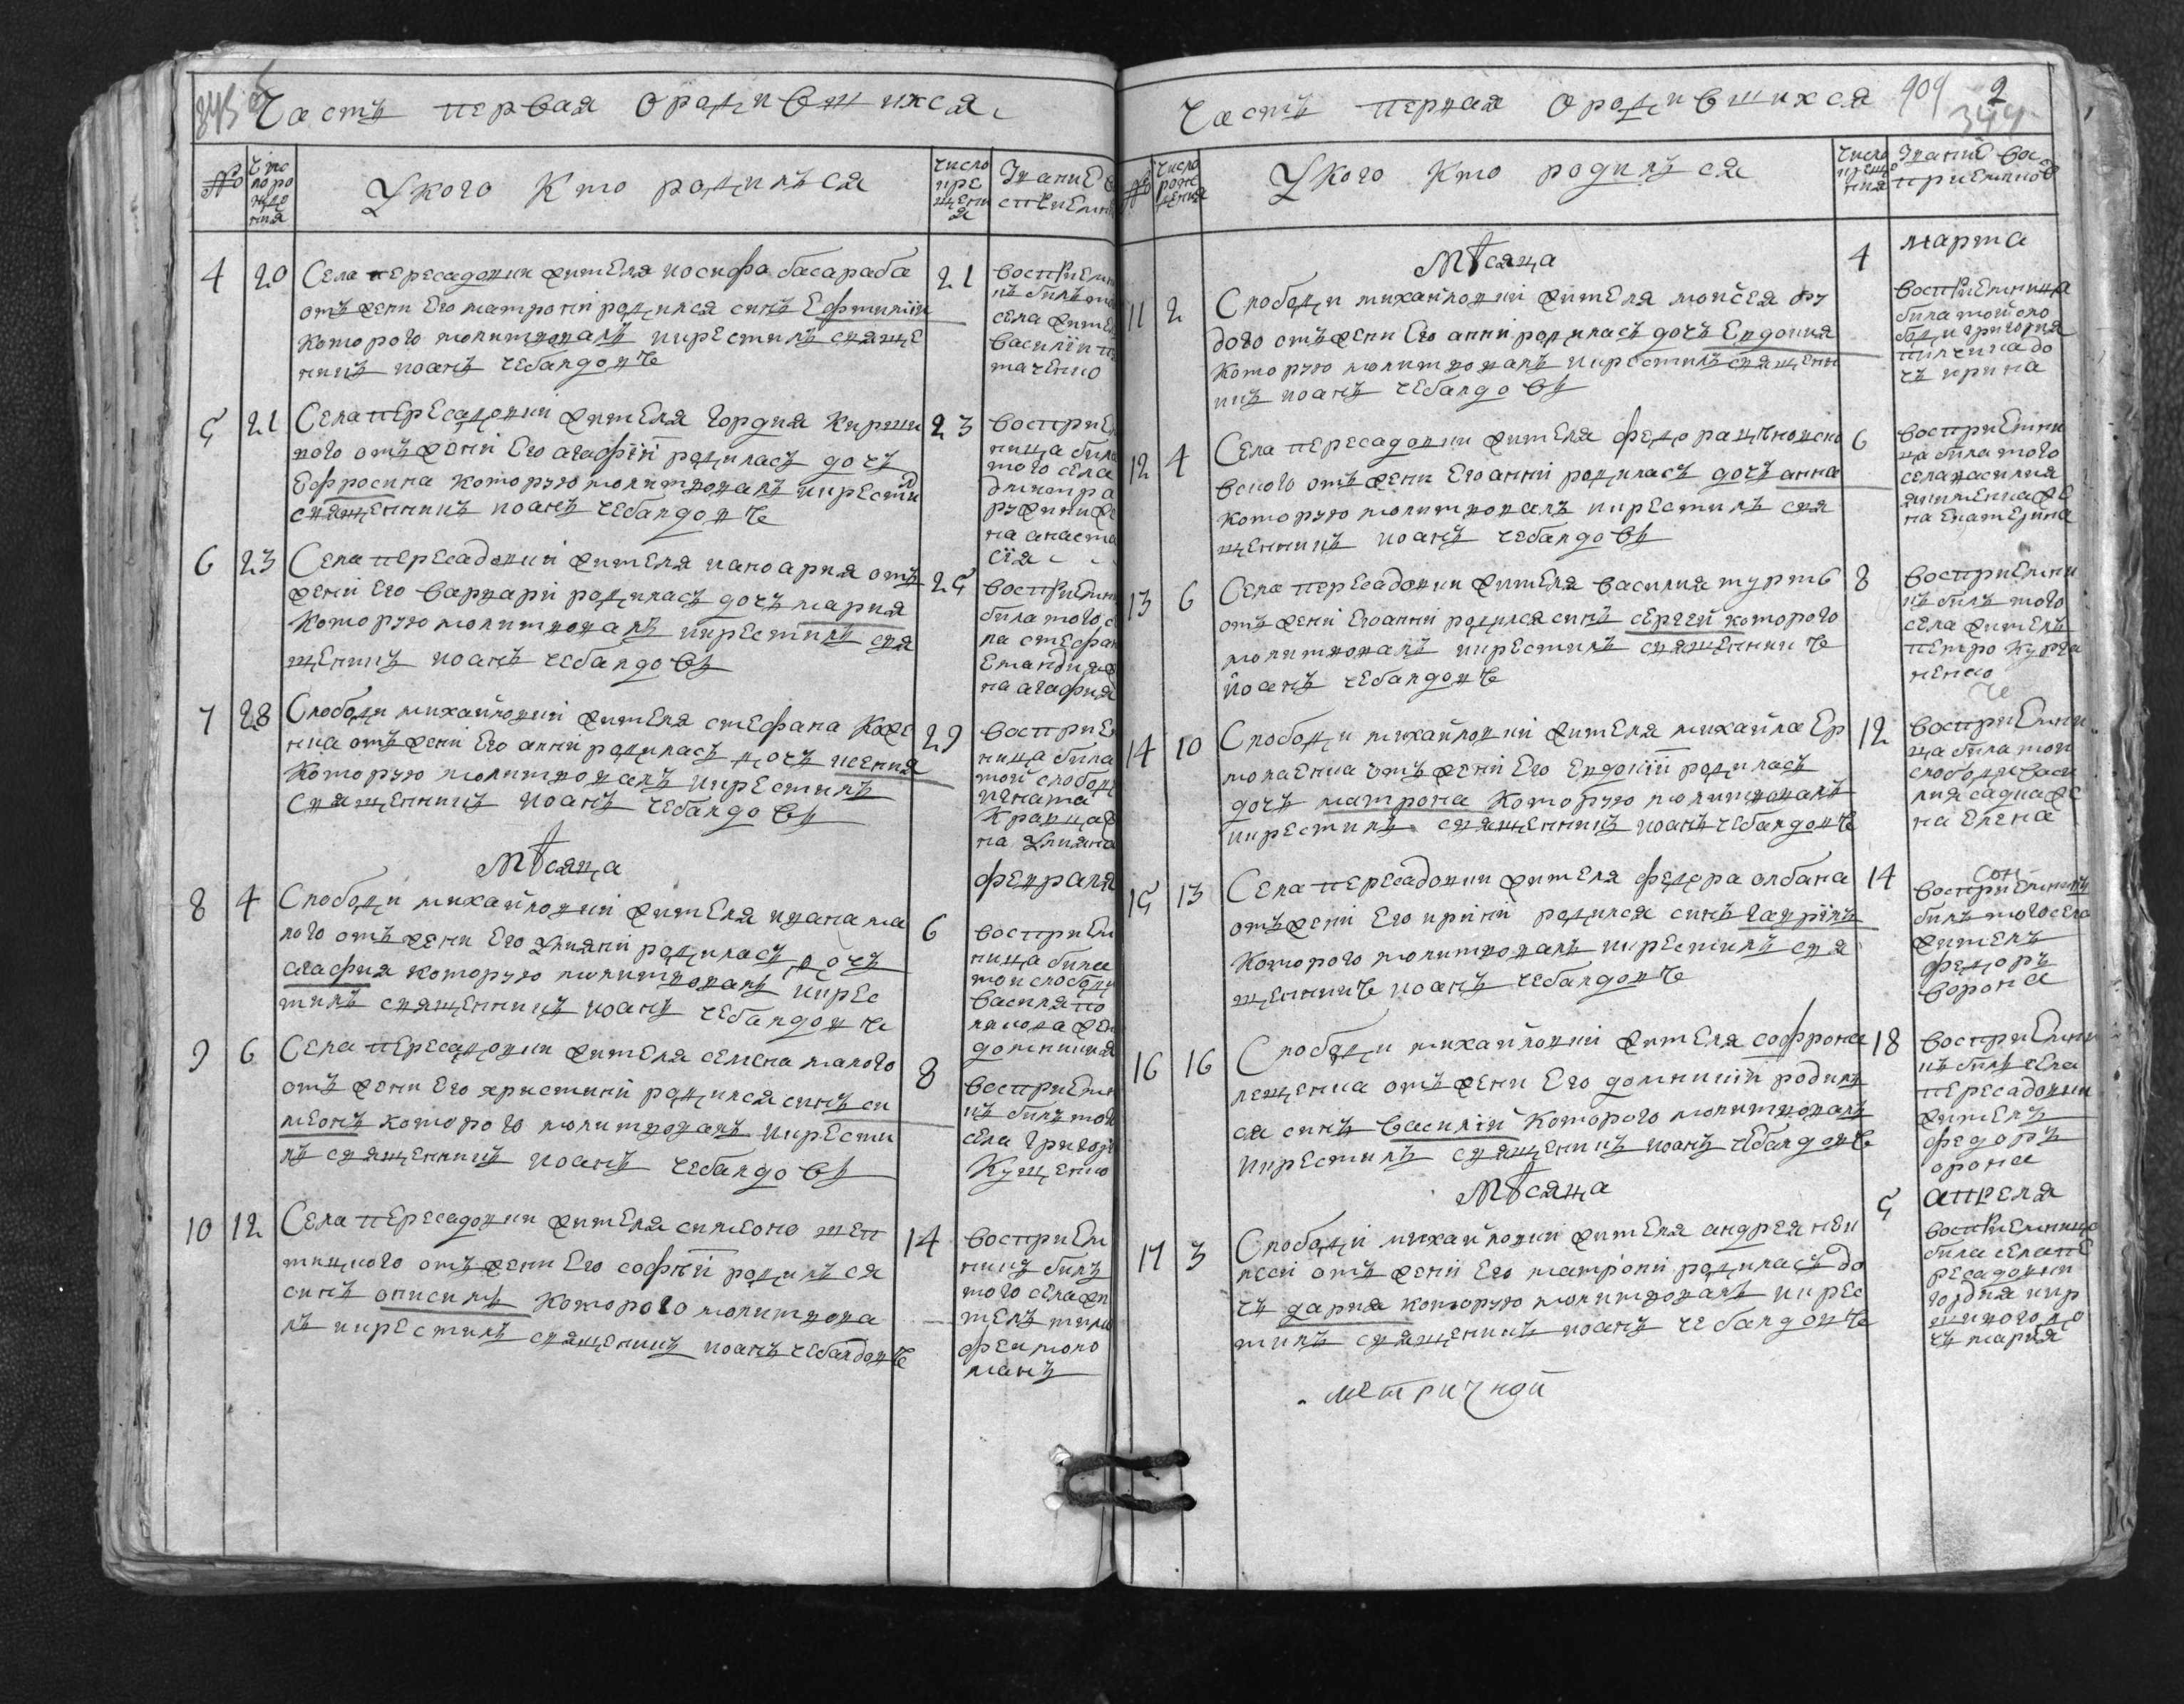 Часть первая ородившихся
№
Число
рожде
ния
Укого Кто родился
число
кре
щени
я
Звание во
сприемни
4 20
Села пересадовки жителя иосифа басараба
отъ жени Его матрони родился синъ Ефтимїи
которого молитвовалъ икрестилъ свяще
никъ иоанъ чебандовъ
21
восприемни
къ билъ то
села жител
василїи
таченко
5 21
Села пересадовки жителя гордия Кирпи
ного отъ жени Его агафїи родиласъ дочъ
Ефросина которую молитвовалъ икрестил
священникъ иоанъ чебандовъ
23
восприем
ница била
того села
дмитра
на анаста
сїя
6 23
Села пересадовки жителя отъ
жени Его варвари родиласъ дочъ мария
которую молитвовалъ икрестилъ свя
щеникъ иоанъ чебандовъ
25
восприемни
била того се
ла стефан
на агафия
7 28
Слободи михайловки жителя стефана
отъ жени Его анни родиласъ дочъ ксения
Которую молитвовалъ икрестилъ
священникъ иоанъ чебандовъ
29
восприем
ница била
той слободи
игната
Кравца же
на улияна
мѣсяца
февраля
8 4
Слободи михайловки жителя ивана ма
лого отъ жени Его улияни родиласъ дочъ
агафия которую молитвовалъ икрес
тилъ священникъ иоанъ чебандовъ
6
восприем
ница била
той слободи
василя по
лякова жен
домникия
9 6
Села пересадовки жителя семена малого
отъ жени Его христини родился синъ си
меонъ которого молитвовалъ икрести
лъ священникъ иоанъ чебандовъ
8
восприемн
къ билъ того
села григори
Кущенко
10 12
Села пересадовки жителя симеона шеп
тицкого отъ жени Его софїи родился
синъ онисимъ которого молитвова
лъ икрестилъ священикъ иоанъ чебандовъ
14
восприем
никъ билъ
того села жи
тель тимо
феи моло
манъ
Часть первая ородившихся
909 2
344
№
Число
рож
дения
Укого Кто родился
число
креще
ния
Звание вос
приемников
мѣсяца
марта
11 2
Слободи михайловки жителя мойсея
дого отъ жени Его анни родиласъ дочъ Евдокия
которую молитвовалъ икрестилъ священи
никъ иоанъ чебандовъ
4
восприемница
била той сло
боди григория
до
чъ ирина
12 4
Села пересадовки жителя федора
вского отъ жени Его анни родиласъ дочъ анна
которую молитвовалъ икрестилъ свя
щенникъ иоанъ чебандовъ
6
восприемни
ца била того
села василия
же
на екатерина
13 6
Села пересадовки жителя василия
отъ жени Его анни родился синъ сергей которого
молитвовалъ икрестилъ священникъ
иоанъ чебандовъ
8
восприемни
къ билъ того
села жителъ
петро Курга
ненко
14 10
Слободи михайловки жителя михайла Ер
молаенка отъ жени Его Евдокїи родиласъ
дочъ матрона Которую молитвовалъ
икрестилъ священникъ иоанъ чебандовъ
12
восприемни
ца била той
слободи васи
лия садка же
на елена
15 13
Села пересадовки жителя федора албана
отъ жени Его ирини родился синъ гаврїилъ
Которого молитвовалъ икрестилъ свя
щенникъ иоанъ чебандовъ
14
восприемникъ
билъ того села
жителъ
федоръ
ворона
16 16
Слободи михайловки жителя софрона
лещенка отъ жени Его домникїи родил
ся синъ василїй Которого молитвовалъ
икрестилъ священикъ иоанъ чебандовъ
18
восприемни
къ билъ села
пересадовки
жителъ
федоръ
орона
мѣсяца
апреля
17 3
Слободи михайловки жителя андрея
отъ жени Его матрони родиласъ до
чъ дария которую молитвовалъ икрес
тилъ священикъ иоанъ чебандовъ
5
восприемница
била села пе
ресадовки
гордия кир
пиного до
чъ мария
метричной